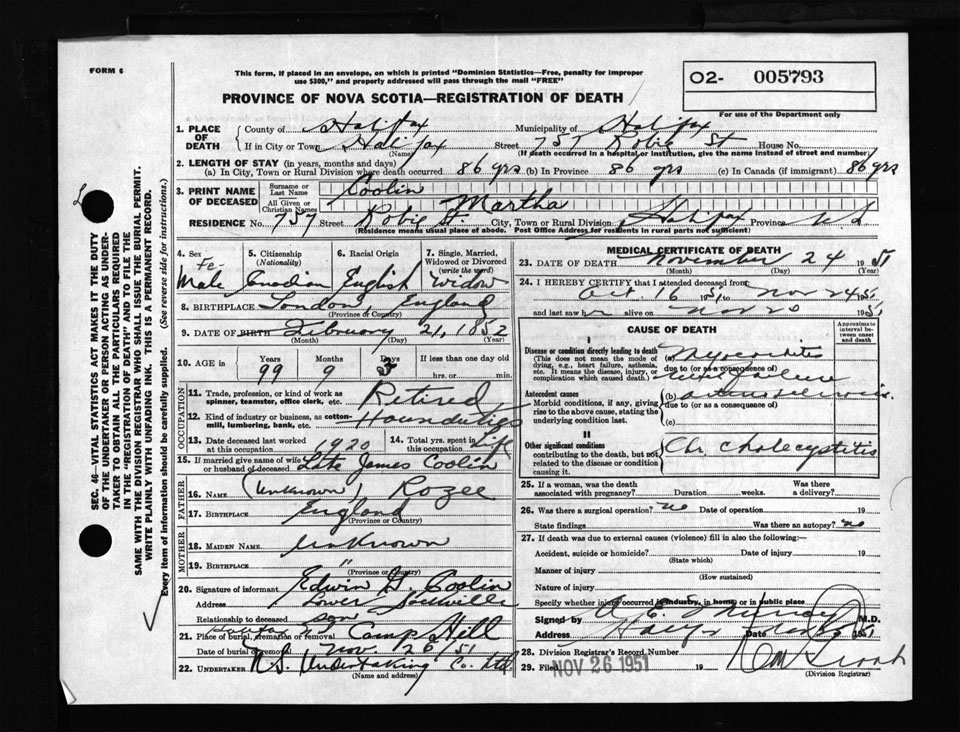 FORM 6
This form, if placed in an envelope, on which is printed "Dominion Statistics—Free, penalty for improper
use $300," and properly addressed will pass through the mail "FREE"
O2- 005793
For use of the Department only
PROVINCE OF NOVA SCOTIA—REGISTRATION OF DEATH
SEC. 46—VITAL STATISTICS ACT MAKES IT THE DUTY
OF THE UNDERTAKER OR PERSON ACTING AS UNDER-
TAKER TO OBTAIN ALL THE PARTICULARS REQUIRED
IN THE "REGISTRATION OF DEATH" AND TO FILE THE
SAME WITH THE DIVISION REGISTRAR WHO SHALL ISSUE THE BURIAL PERMIT.
WRITE PLAINLY WITH UNFADING INK. THIS IS A PERMANENT RECORD.
Every item of information should be carefully supplied. (See reverse side for instructions.)
1. PLACE OF DEATH
County of Halifax Municipality of Halifax
If in City or Town Halifax Street 757 Robie St House No.
(Name) (If death occurred in a hospital or institution, give the name instead of street and number)
2. LENGTH OF STAY (in years, months and days)
(a) In City, Town or Rural Division where death occurred 86 yrs (b) In Province 86 yrs (c) In Canada (if immigrant) 86 yrs
3. PRINT NAME OF DECEASED
Surname or Last Name Coolin
All Given or Christian Names Martha
RESIDENCE No. 757 Street Robie St. City, Town or Rural Division Halifax Province N.S.
(Residence means usual place of abode. Post Office Address for residents in rural parts not sufficient)
4. Sex Female
5. Citizenship (Nationality) Canadian
6. Racial Origin English
7. Single, Married, Widowed or Divorced (write the word) Widow
8. BIRTHPLACE London, England
(Province or Country)
9. DATE OF BIRTH February 21, 1852
(Month) (Day) (Year)
10. AGE in Years Months Days If less than one day old
99 9 3 hrs. or min.
OCCUPATION
11. Trade, profession, or kind of work as spinner, teamster, office clerk, etc. Retired
12. Kind of industry or business, as cotton-mill, lumbering, bank, etc.
13. Date deceased last worked at this occupation 1920
14. Total yrs. spent in this occupation Life
15. If married give name of wife or husband of deceased Late James Coolin
FATHER
16. NAME (Unknown) Rozee
17. BIRTHPLACE England
(Province or Country)
MOTHER
18. MAIDEN NAME Unknown
19. BIRTHPLACE "
(Province or Country)
20. Signature of informant Edwin H. Coolin
Address Lower Sackville
Relationship to deceased son
21. Place of burial, cremation or removal Camp Hill
Date of burial or removal Nov. 26/51
22. UNDERTAKER N.S. Undertaking Co. Ltd
(Name and address)
MEDICAL CERTIFICATE OF DEATH
23. DATE OF DEATH November 24 1951
(Month) (Day) (Year)
24. I HEREBY CERTIFY that I attended deceased from:
Oct. 16 1951 to Nov 24 1951
and last saw her alive on Nov 20 1951
CAUSE OF DEATH
Approximate interval between onset and death
I
Disease or condition directly leading to death
(This does not mean the mode of dying, e.g., heart failure, asthenia, etc. It means the disease, injury, or complication which caused death.)
(a) Myocarditis
due to (or as a consequence of)
Antecedent causes
Morbid conditions, if any, giving rise to the above cause, stating the underlying condition last.
(b)
due to (or as a consequence of)
(c)
II
Other significant conditions contributing to the death, but not related to the disease or condition causing it.
Chr cholecystitis
25. If a woman, was the death associated with pregnancy? Duration weeks. Was there a delivery?
26. Was there a surgical operation? no Date of operation 19
State findings Was there an autopsy? no
27. If death was due to external causes (violence) fill in also the following:—
Accident, suicide or homicide? Date of injury 19
(State which)
Manner of injury
(How sustained)
Nature of injury
Specify whether injury occurred in industry, in home, or in public place
Signed by M.D.
Address Date 1951
28. Division Registrar's Record Number
29. Filed NOV 26 1951 19
(Division Registrar)